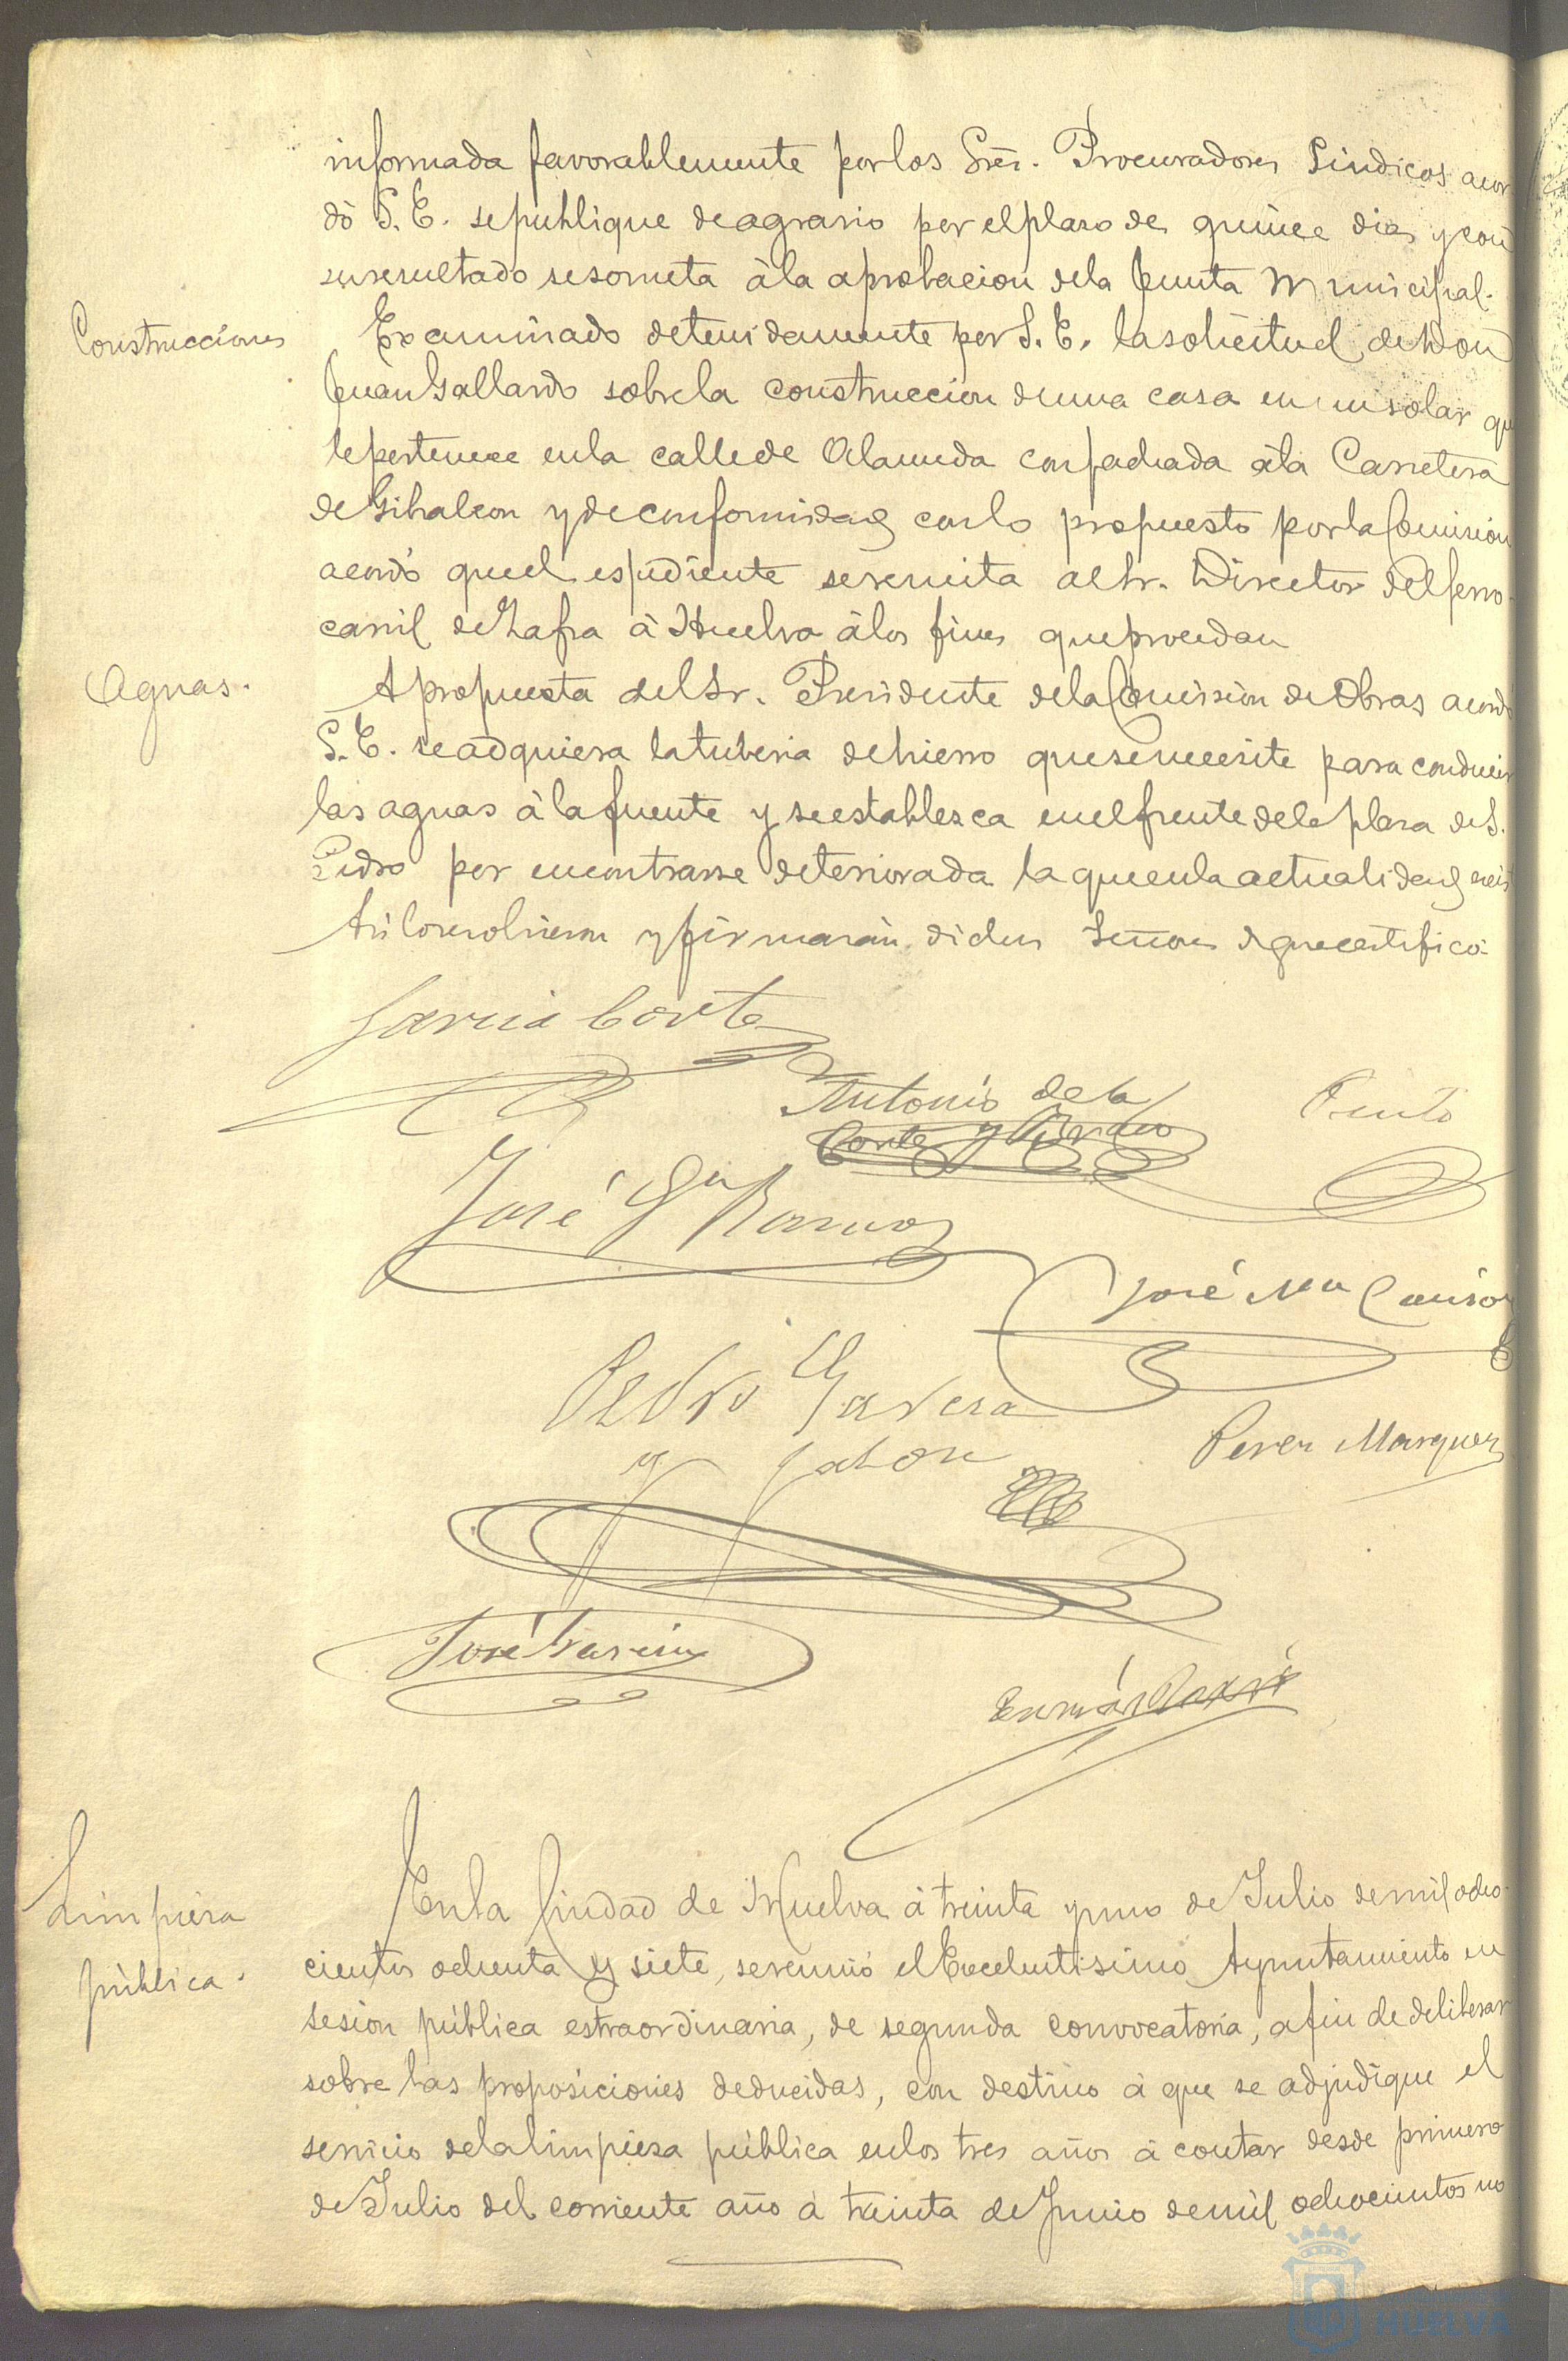 informada favorablemente por los Sres. Procuradores Sindicos acor
dó S. E. se publique de agravio por el plazo de quince dias y con
su resultado se someta à la aprobacion de la Junta Municipal.
Construcciones
Examinado detenidamente por S. E. la solicitud de Don
Juan Gallardo sobre la construccion de una casa en un solar qu
le pertenece en la calle de Alameda con fachada à la Carretera
de Gibraleon y de conformidad con lo propuesto por la Comision
acordó que el espediente se remita al Sr. Director del ferro
carril de Zafra à Huelva à los fines que procedan
Aguas.
A propuesta del Sr. Presidente de la Comision de Obras acordó
S. E. se adquiera la tuberia de hierro que se necesite para conducir
las aguas à la fuente y se establezca en el frente de la plaza de S.
Pedro por encontrarse deteriorada la que en la actualidad exis
Asi lo resolvieron y firmarán dichos Señores de que certifico.
Garcia Corte
Antonio de la
Corte y
Pinto
José Ga Ramos
José Ma
Pedro Garcia
y Jabon
Perez Marquez
José Garcia
Limpieza
pública.
En la Ciudad de Huelva à treinta y uno de Julio de mil ocho
cientos ochenta y siete, se reunió el Excelentisimo Ayuntamiento en
sesion pública estraordinaria, de segunda convocatoria, a fin de deliberar
sobre las proposiciones deducidas, con destino à que se adjudique el
servicio de la limpieza pública en los tres años à contar desde primero
de Julio del corriente año à treinta de Junio de mil ochocientos no
HUELVA